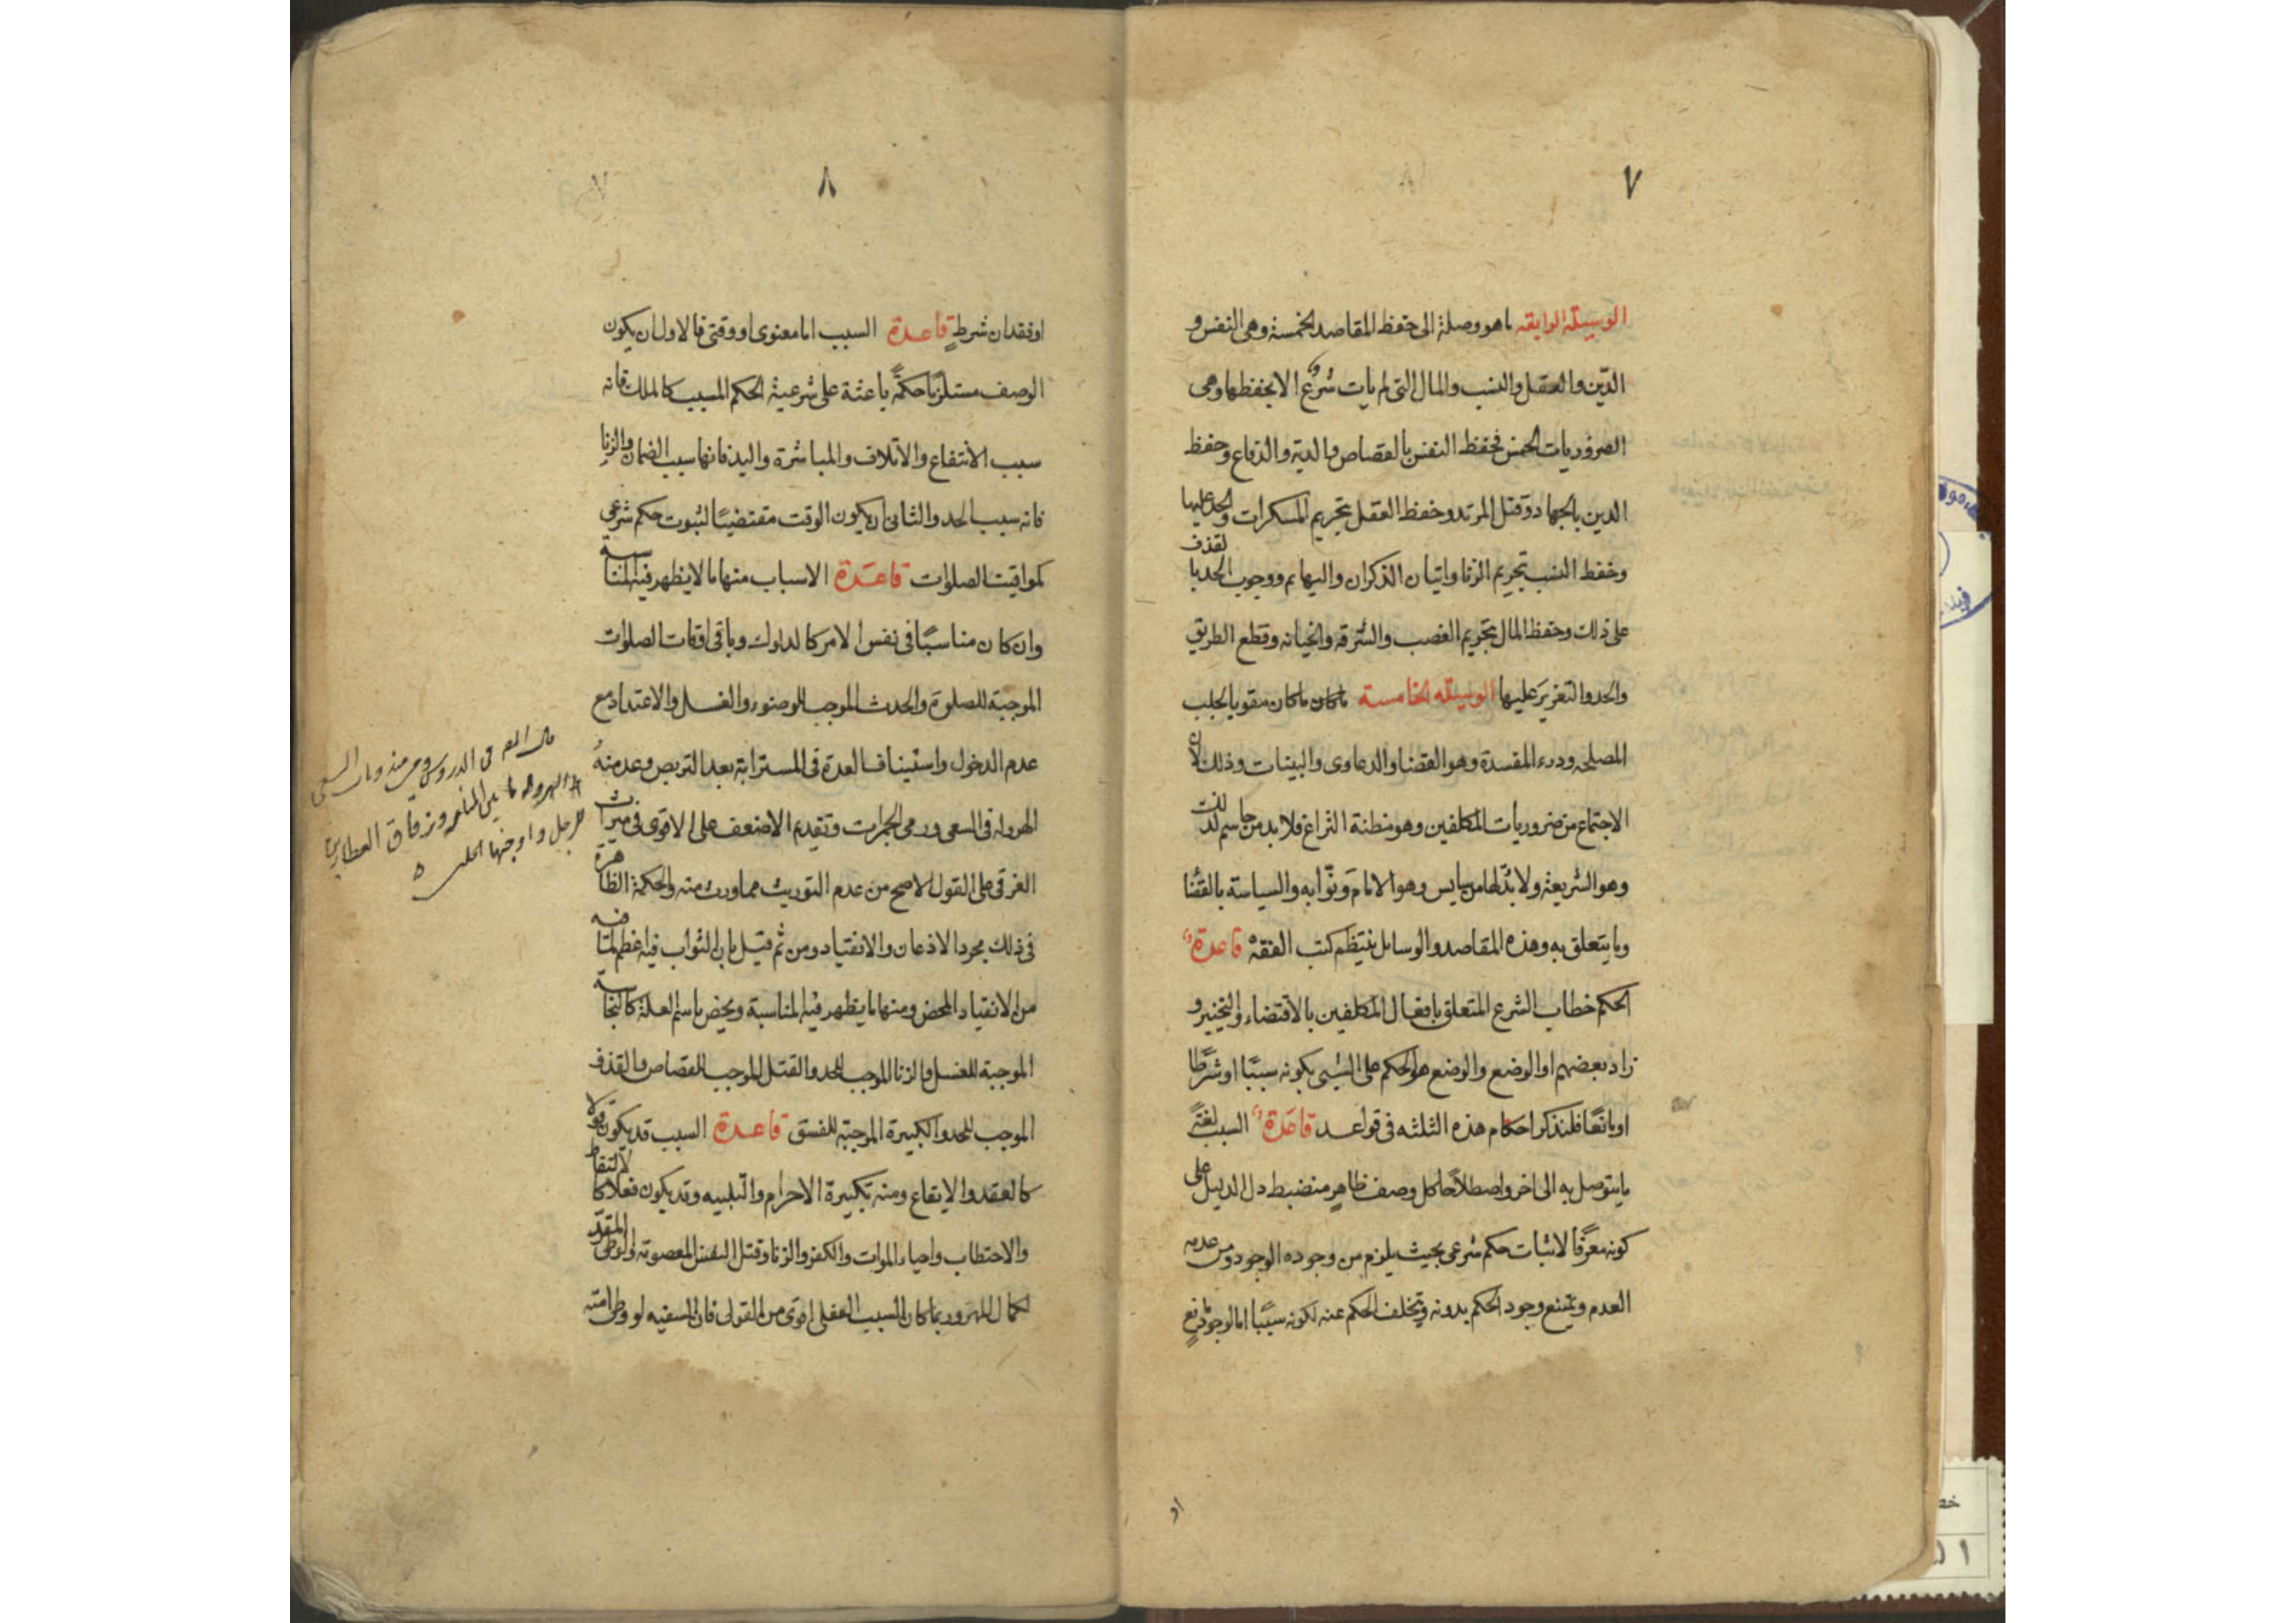 ٧
الوسيلة الرابعة ما هو وصلة الى حفظ المقاصد الخمسة وهى النفس و
الدّين والعقل والنسب والمال التى لم يأت شرع الا بحفظها وهى
الضروريات الخمس فحفظ النفس بالقصاص والدية والدفاع وحفظ
الدين بالجهاد وقتل المرتد وحفظ العقل بتحريم المسكرات والحد عليها
وحفظ النسب بتحريم الزنا واتيان الذكران والبهايم ووجوب الحد بالقذف
على ذلك وحفظ المال بتحريم الغصب والسرقه والخيانه وقطع الطريق
والحد والتعزير عليها الوسيله الخامسة ما كان مقويا لجلب
المصلحه ودرء المفسدة وهو القضا والدعاوى والبينات وذلك لان
الاجتماع من ضروريات المكلفين وهو مظنة النزاع فلا بد من حاسم لذلك
وهو الشريعة ولا بدّ لها من سايس وهو الامام ونوّابه والسياسة بالقضا
وما يتعلق به وهذه المقاصد والوسايل ينتظم كتب الفقه قاعدة
الحكم خطاب الشرع المتعلق بافعال المكلفين بالاقتضاء والتخيير و
زاد بعضهم او الوضع والوضع هو الحكم على الشىء بكونه سببًا او شرطًا
او مانعًا فلنذكر احكام هذه الثلثه فى قواعد قاعدة السبب لغةً
ما يتوصل به الى اخر واصطلاحًا كل وصف ظاهر منضبط دل الدليل على
كونه معرّفًا لاثبات حكم شرعى بحيث يلزم من وجوده الوجود ومن عدمه
العدم ويمتنع وجود الحكم بدونه وتخلف الحكم عنه لكونه سببًا اما لوجود مانع
او
٨
او فقدان شرطٍ قاعدة السبب اما معنوى او وقتى فالاول ان يكون
الوصف مستلزمًا حكمةً باعثة على شرعية الحكم المسبب كالملك فانه
سبب الانتفاع والاتلاف والمباشرة واليد فانها سبب الضمان والزنا
فانه سبب الحد والثانى ان يكون الوقت مقتضيًا لثبوت حكم شرعى
كمواقيت الصلوات قاعدة الاسباب منها ما لا يظهر فيه المناسبة
وان كان مناسبًا فى نفس الامر كالدلوك وباقى اوقات الصلوات
الموجبة للصلوة والحدث الموجب للوضوء والغسل والاعتداد مع
عدم الدخول واستيناف العدة فى المسترابة بعد التربص وعدمنه
الهروله فى السعى ورمى الجمرات وتقديم الاضعف على الاقوى فى ميراث
الغرقى على القول الاصح من عدم التوريث مما ورث منه والحكمة الظاهرة
فى ذلك مجرد الاذعان والانقياد ومن ثم قيل بان الثواب فيه اعظم لما فيه
من الانقياد المحض ومنها ما يظهر فيه المناسبة ويخص باسم العلة كالنجاسة
الموجبة للغسل والزنا الموجب للحد والقتل الموجب للقصاص والقذف
الموجب للحد والكبيرة الموجبة للفسق قاعدة السبب قد يكون قولا
كالعقد والايقاع ومنه تكبيرة الاحرام والتلبيه وقد يكون فعلا كالالتقاط
والاحتطاب واحياء الموات والكفر والزنا وقتل النفس المعصومة والوطى المقرّر
لكمال المهر وربما كان السبب الفعلى اقوى من القولى فان السفيه لو وطى امته
الهروله ما بين المناره وزقاق العطارين
للرجل واوجبها الحلبى